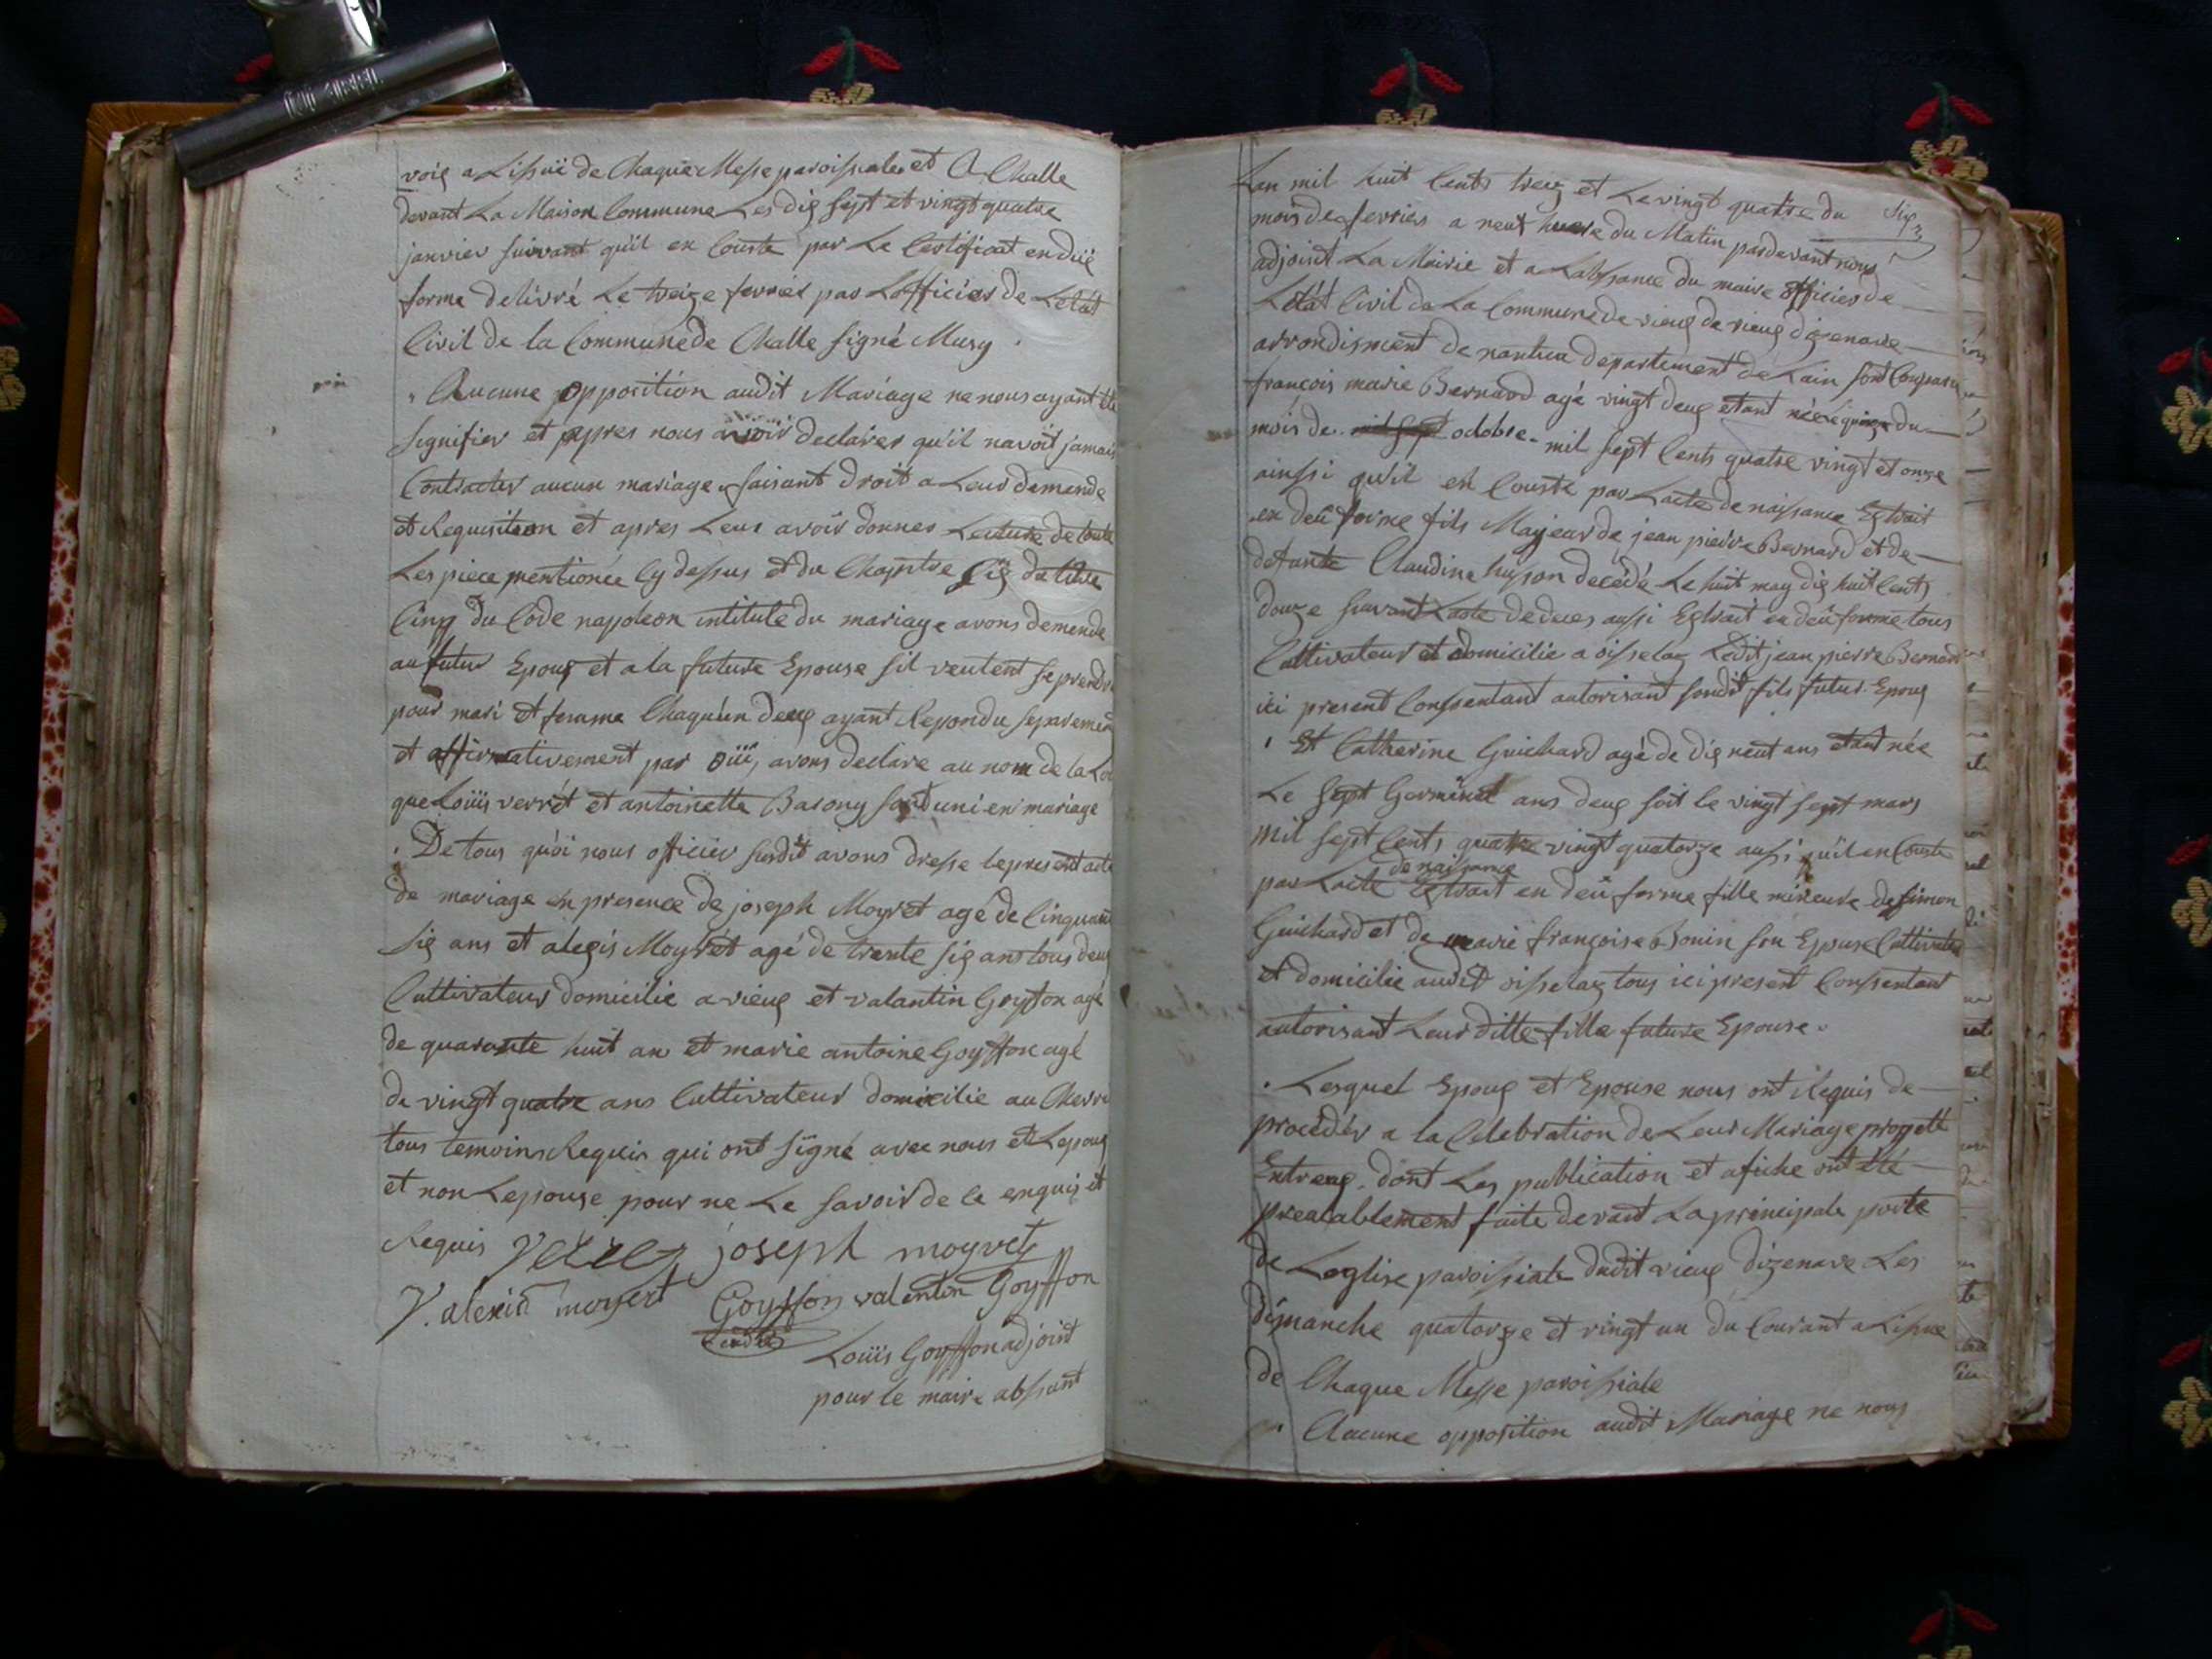 voig a Lissuë de Chaque Messe paroissiales et A Challe
devant La Maison Commune Les dig sept et vingt quatre
janvier suivant qu'il en Couste par Le Certificat en düe
forme delivré Le treize fevries par Lofficier de Létat
Civil de la Commune de Challe signé Musy .
Aucune opposition audit Mariage ne nous ayant été
signifier et appres nous avoir declarer qu'il navoit jamais
Contracter aucun mariage, faisant droit a Leur demende
et Requisition et apres Leur avoir donner Lecture de toute
Les piece mentionée Cy dessus et du Chapitre sig du titre
Cinq du Code napoleon intitule du mariage avons demende
au futur Epoug et a la future Epouse sil veulent se prendre
pour mari et femme Chaquún deug ayant Repondu separement
et affirmativement par oüi, avons declare au nom de la Loi
que Loüis verrét et antoinette Barony sont uni en mariage
. De tous quoi nous officier susdit avons dresse le present acte
de mariage en presence de joseph Moyret agé de Cinquante
sig ans et alegis Moyret agé de trente sig ans tous deug
Cultivateur domicilie a vieug et valantin Goyffon agé
de quarante huit an et marie antoine Goyffon agé
de vingt quatre ans Cultivateur domicilie au Chevri
tous temoins Requis qui ont signé avec nous et Lepoug
et non Lepouse pour ne Le savoir de ce enquis et
Requis joseph moyret
alexis moyret Goyffon valentin Goyffon
Loüis Goyffon adjoint
pour le maire absant
Lan mil huit Cents treig et Le vingt quatre du
mois de fevrier a neuf heure du Matin pardevant nous
adjoint La Mairie et a Labsance du maire officier de
Létat Civil de La Commune de vieug de vieug d'izenave
arrondisment de nantua departement de Lain sont Comparu
françois marie Bernard agé vingt deug etant née le quinze du
mois de octobre mil sept Cents quatre vingt et onze
ainssi qu'il en Couste par Lacte de naissance Egtrait
en deü forme fils Majeur de jean pierre Bernard et de
defunte Claudine huson decédé Le huit may dig huit Cents
douze suivant Lacte de deces aussi Egtrait en deü forme tous
Cultivateur et domicilie a oisselag Ledit jean pierre Bernard
ici present Conssentant autorisant sondit fils futur Epoug
. Et Catherine Guichard agé de dig neuf ans etant née
Le sept Germinal ans deug soit le vingt sept mars
mil sept Cents quatre vingt quatorze aussi qu'il en Couste
de naissance
par Lacte Egtrait en deü forme fille mineure de simon
Guichard et de marie françoise Bonin son Epouse Cultivateur
et domicilie audit oisselag tous ici present Conssentant
autorisant Leur ditte fille future Epouse.
. Lesquel Epoug et Epouse nous ont Requis de
procéder a la Celebration de Leur Mariage progetté
Entreug. dont Les publication et afiche ont été
prealablement faite devant La principale porte
de Leglise paroissiale dudit vieug dizenave Les
dimanche quatorze et vingt un du Courant a Lissue
de Chaque Messe paroissiale
Aucune opposition audit Mariage ne nous